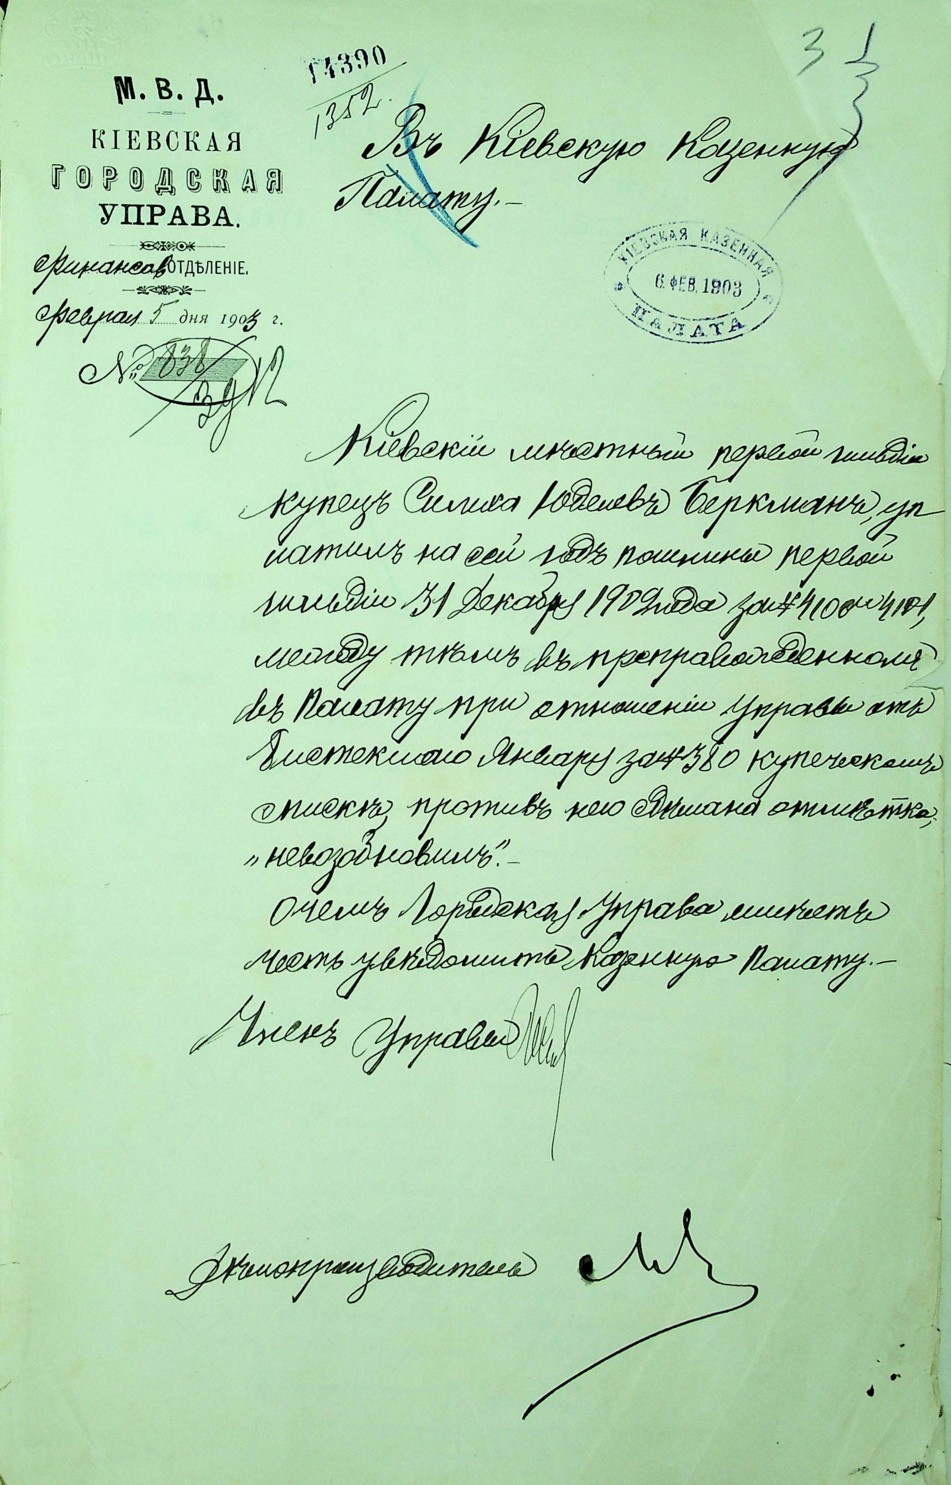 14390
1352.
3
М. В. Д.
КІЕВСКАЯ
ГОРОДСКАЯ
УПРАВА.
Финансов ОТДѢЛЕНІЕ.
Феврал 5 дня 1903 г.
№ 838
Въ Кіевскую Казенную
Палату.–
КІЕВСКАЯ КАЗЕННАЯ
6 ФЕВ. 1903
ПАЛАТА
Кіевскій мѣстный первой гильдіи
купецъ Симха Юделевъ Беркманъ, уп
латилъ на сей годъ пошлины первой
гильдіи 31 Декабря 1902 года за № 4100 и 4101,
между тѣмъ въ препровожденномъ
въ Палату при отношеніи Управы отъ
истекшаго Января за № 380 купеческомъ
спискѣ, противъ него сдѣлана отмѣтка,
„невозобновилъ".–
О чемъ Городская Управа имѣетъ
честь увѣдомить Казенную Палату.–
Членъ Управы
Дѣлопроизводитель